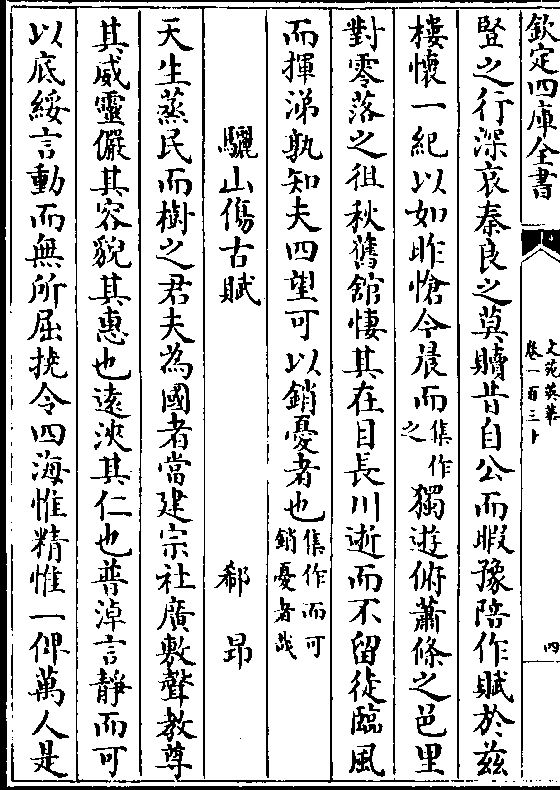 欽定四庫全書
文苑英華
卷一百三十
四
豎之行深哀秦良之莫贖昔自公而暇豫陪作賦於兹
樓懷一紀以如昨愴今晨而集作之獨遊俯蕭條之邑里
對零落之徂秋舊館悽其在目長川逝而不留徙臨風
而揮涕孰知夫四望可以銷憂者也集作而可銷憂者哉
驪山傷古賦 郗昂
天生蒸民而樹之君夫為國者當建宗社廣敷聲教尊
其威靈儼其容貌其惠也遠浹其仁也普淖言靜而可
以底綏言動而無所屈撓令四海惟精惟一俾萬人是